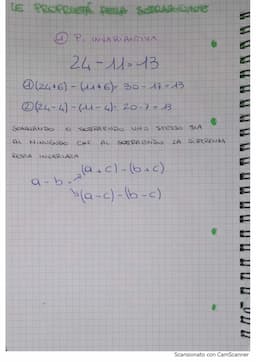 LE PROPRIETÁ DELLA SOTTRAZIONE
① P. INVARIANTIVA
24 - 11 = 13
① (24+6) - (11+6) = 30 - 17 = 13
② (24-4) - (11-4) = 20 - 7 = 13
UNO STESSO SIA
AL MINUENDO CHE AL SOTTRAENDO LA DIFFERENZA
RESTA INVARIATA
(a + c) - (b + c)
a - b =
(a - c) - (b - c)
Scansionato con CamScanner